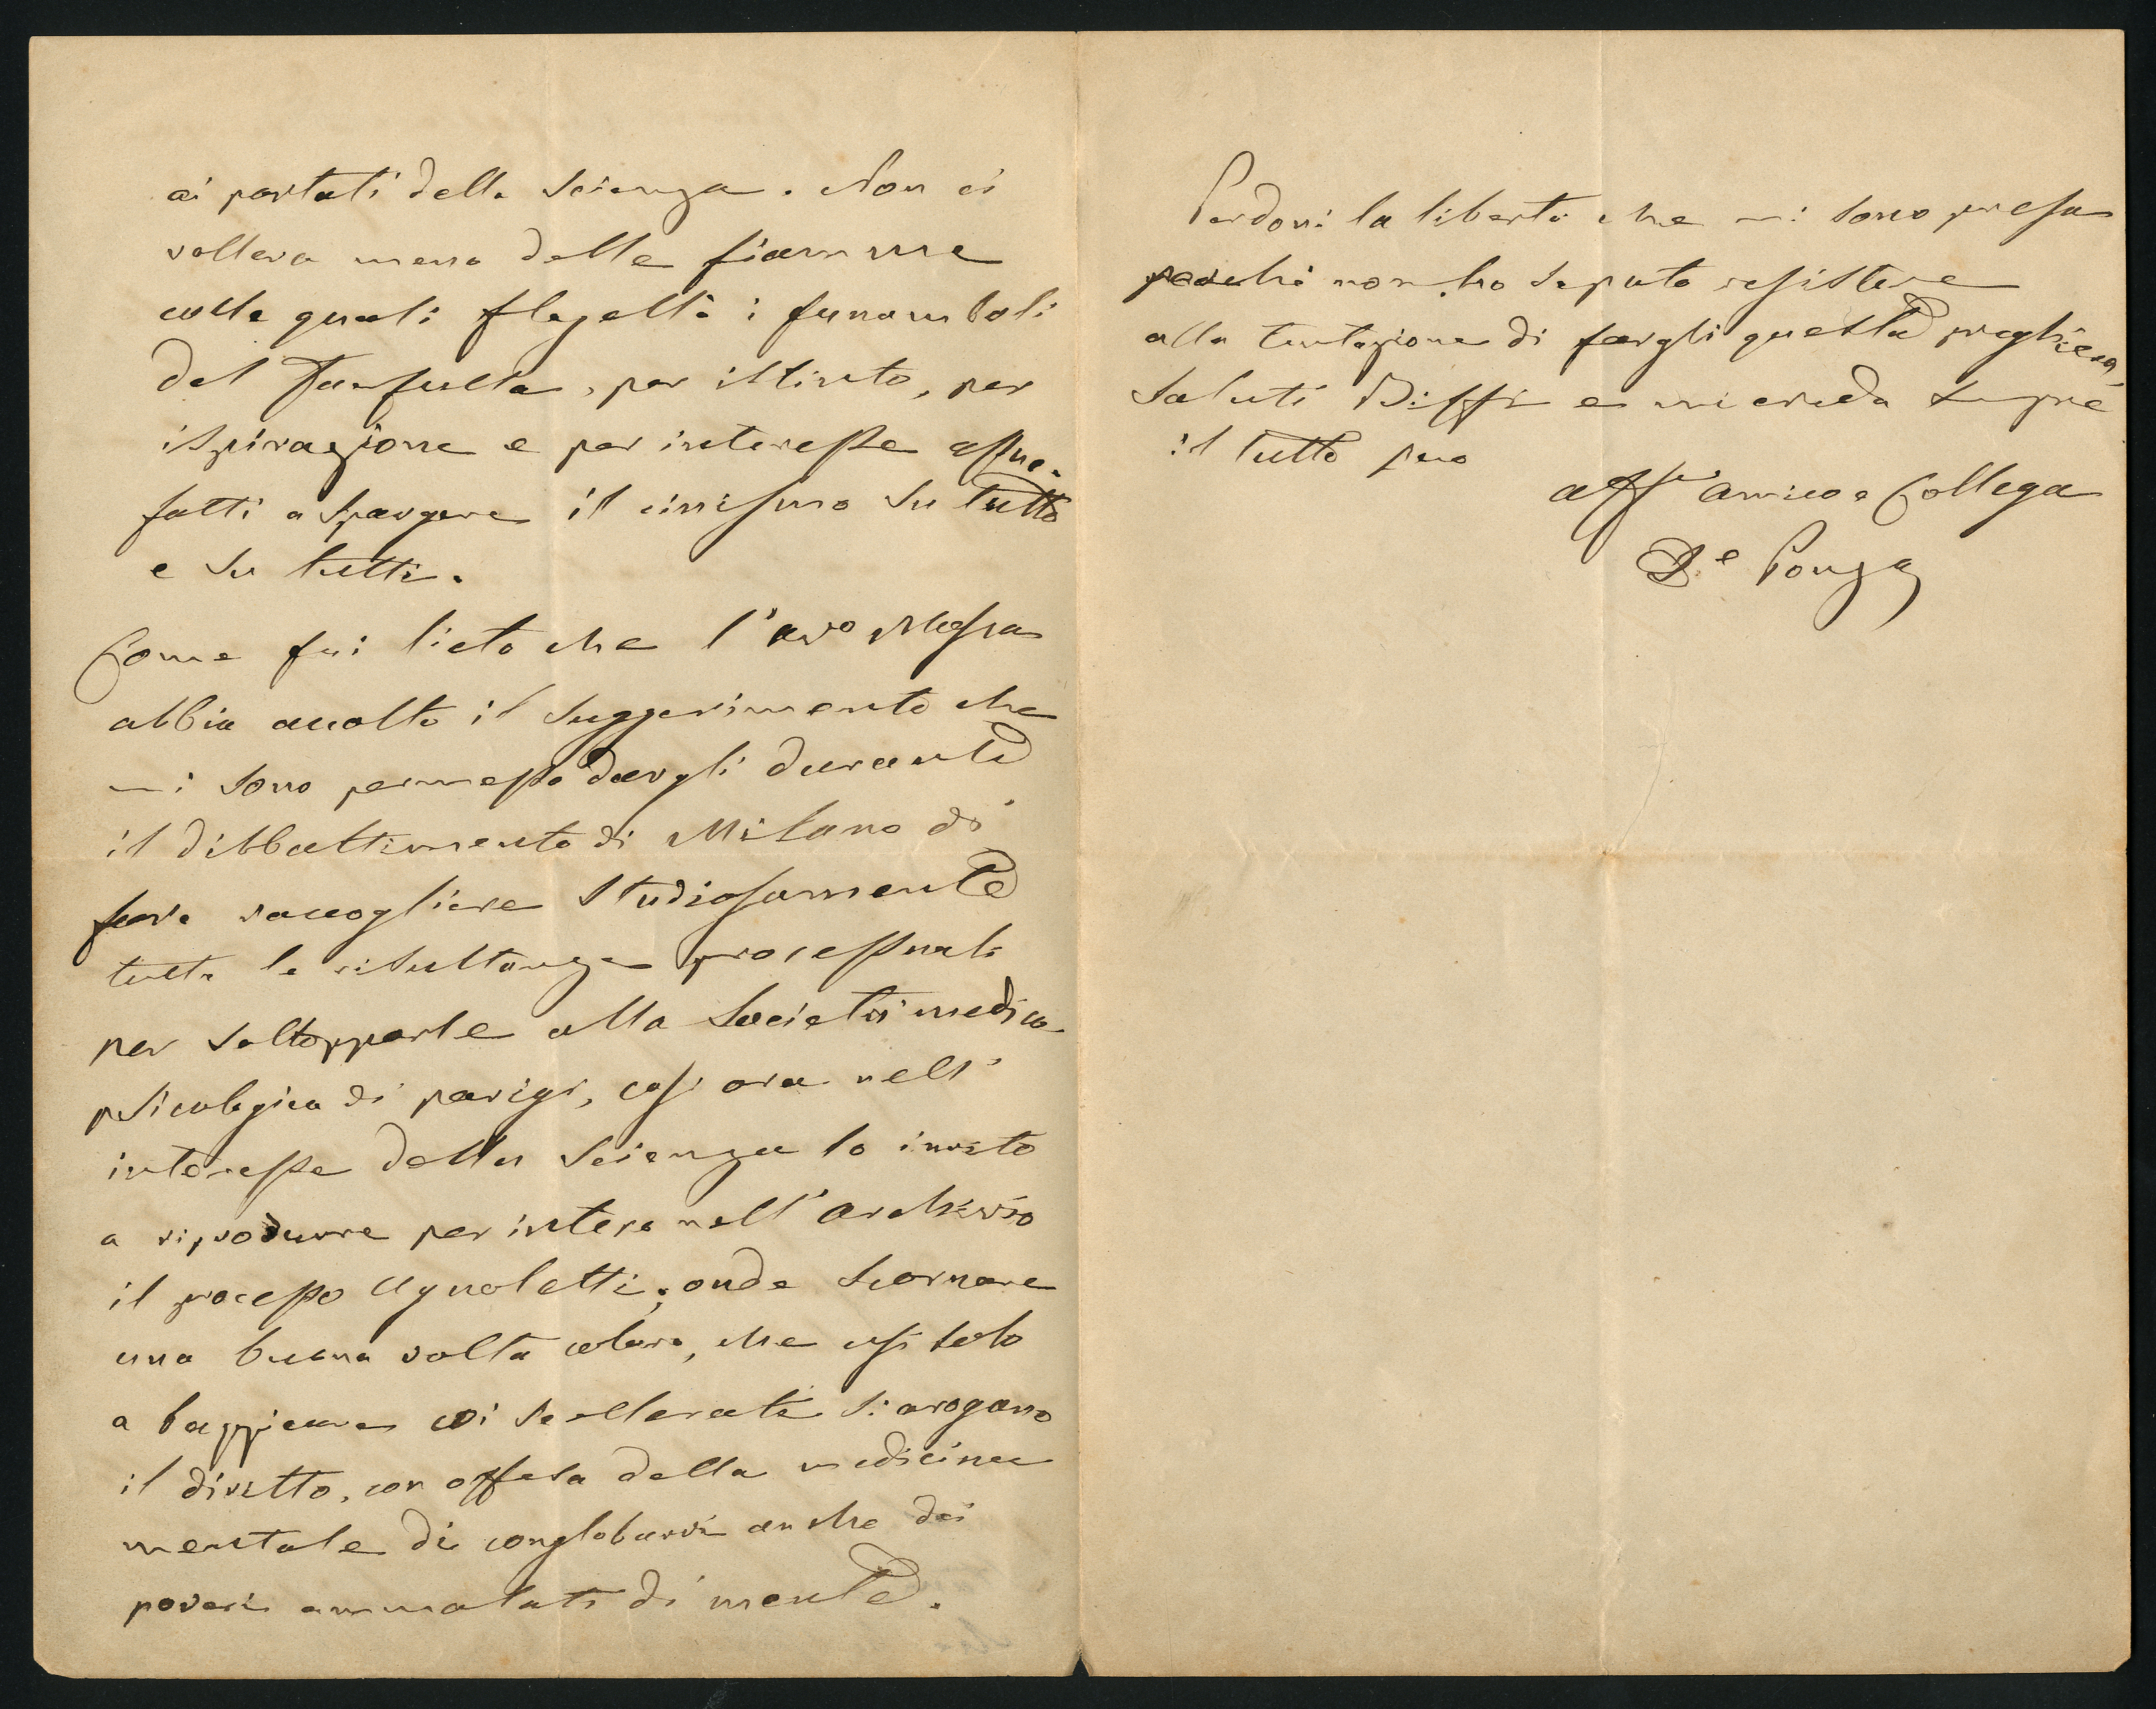 ai portati della Scienza. Non ci
volleva meno delle fiamme
colle quali flagellò i funamboli
del Fanfulla, per istinto, per
ispirazione e per interesse assue-
fatti a spargere il cinismo su tutto
e su tutti.
Come fui lieto che l'avo Mosca
abbia accolto il suggerimento che
mi sono permesso dargli durante
il dibbattimento di Milano di
fare raccogliere studiosamente
tutte le risultanze processuali
per sottopporle alla Società medico
psicologica di parigi, così ora nell'
interesse della Scienza lo invito
a riprodurre per intero nell'archivio
il processo Agnoletti; onde scornare
una buona volta coloro, che
a coi scellerati si arogano
il diritto, con offesa della medicina
mentale di conglobarvi anche dei
poveri ammalati di mente.
Perdoni la libertà che mi sono presa
perchè non ho saputo resistere
alla tentazione di fargli questa preghiera,
Saluti Biffi e mi creda sempre
il tutto suo
aff amico e Collega
De Ponza